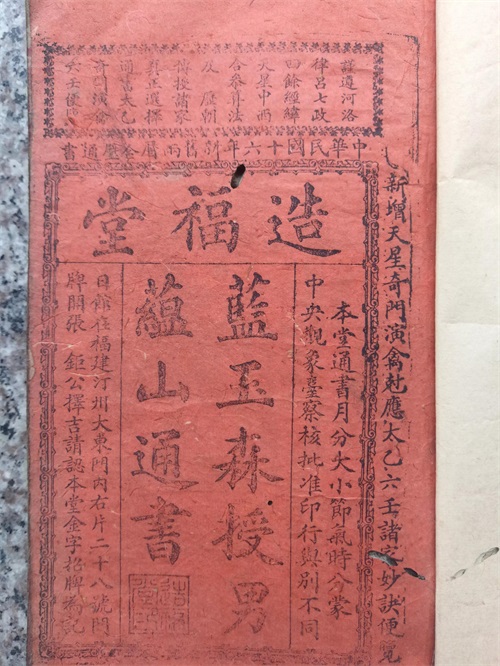 新增天星奇門演禽赴應太乙六壬諸家妙訣便覽
謹遵河洛
律呂七政
四餘經緯
天星中西
合參算法
及歷朝
傳授諸家
真正選擇
通書太乙
奇門演禽
六壬便覽
中華民國十六年新舊两曆合璧通書
造福堂
本堂通書月分大小節氣時分蒙
中央觀象臺察核批准印行與別不同
藍玉森授男
蘊山通書
日館在福建汀州大東門內右片二十八號門
牌開張 鉅公擇吉請認本堂金字招牌為記